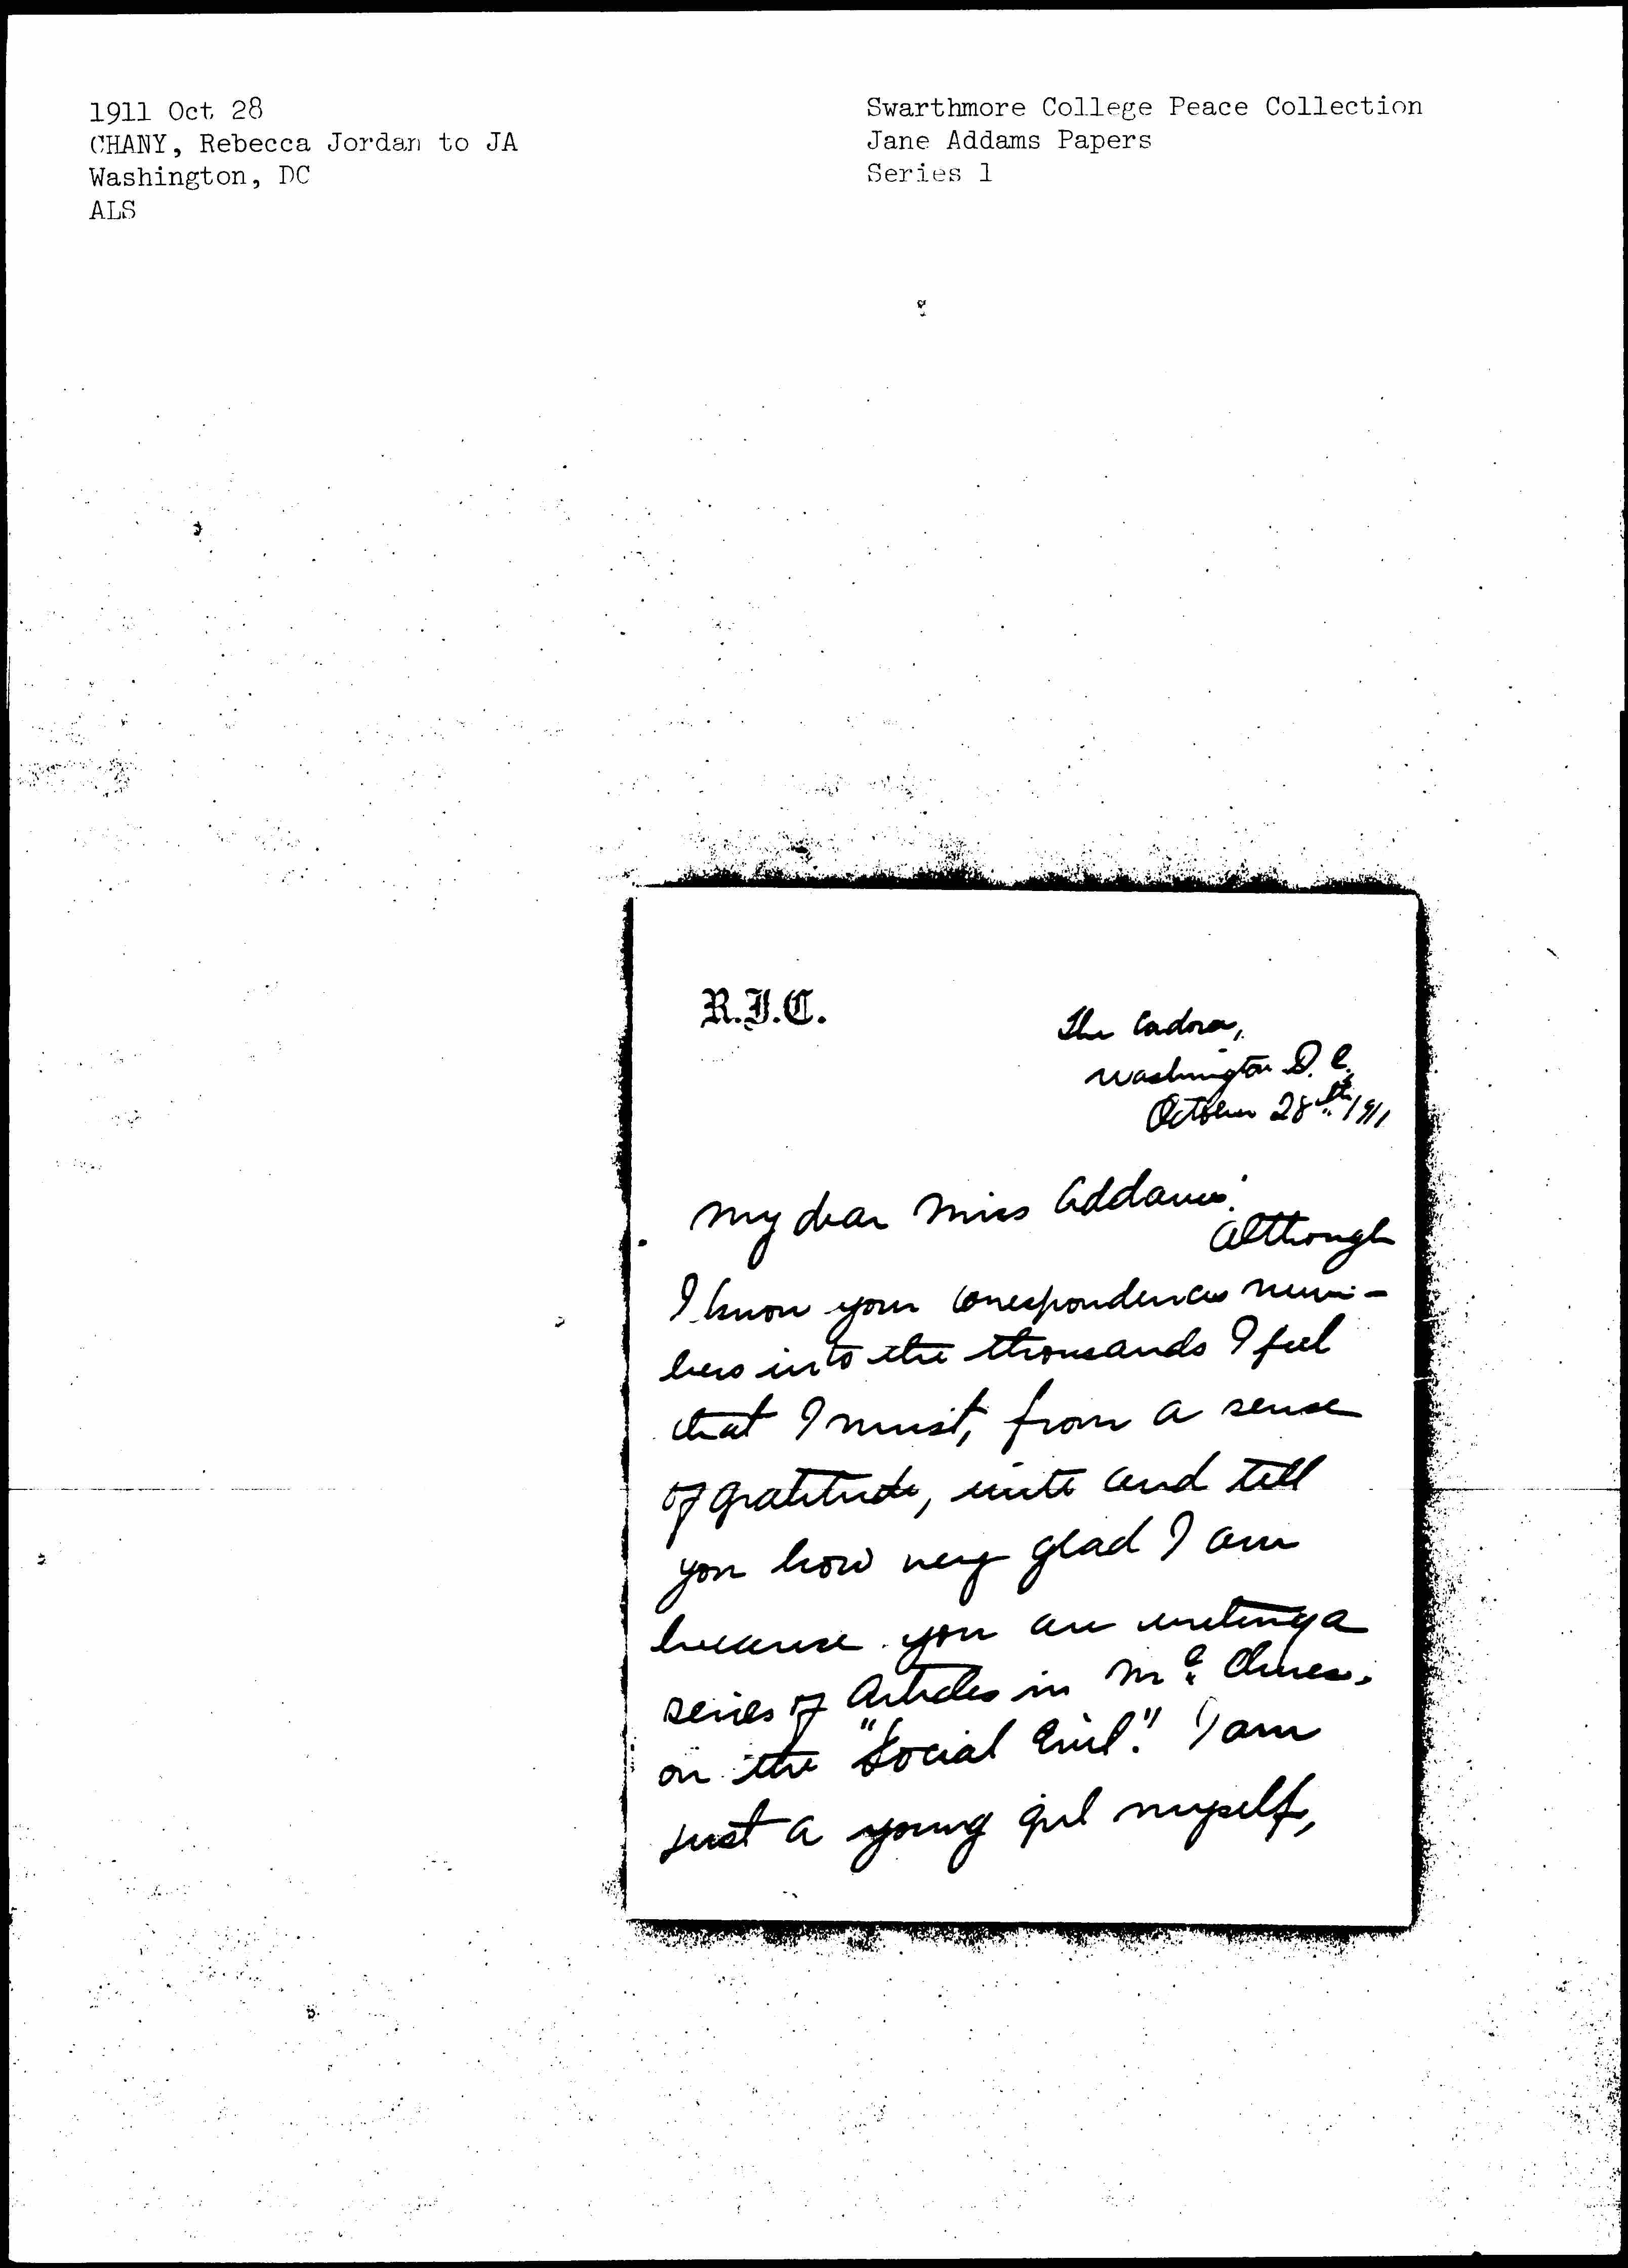 1911 Oct 28
CHANY, Rebecca Jordan to JA
Washington, DC
ALS
Swarthmore College Peace Collection
Jane Addams Papers
Series 1
R.J.C.
The Cadora,
Washington D. C.
October 28th 1911
My dear Miss Addams:
Although
I know your correspondences num-
bers into the thousands I feel
that I must, from a sense
of gratitude, write and tell
you how very glad I am
because you are writing a
series of Articles in Mc
on the "Social Evil". I am
just a young girl myself,